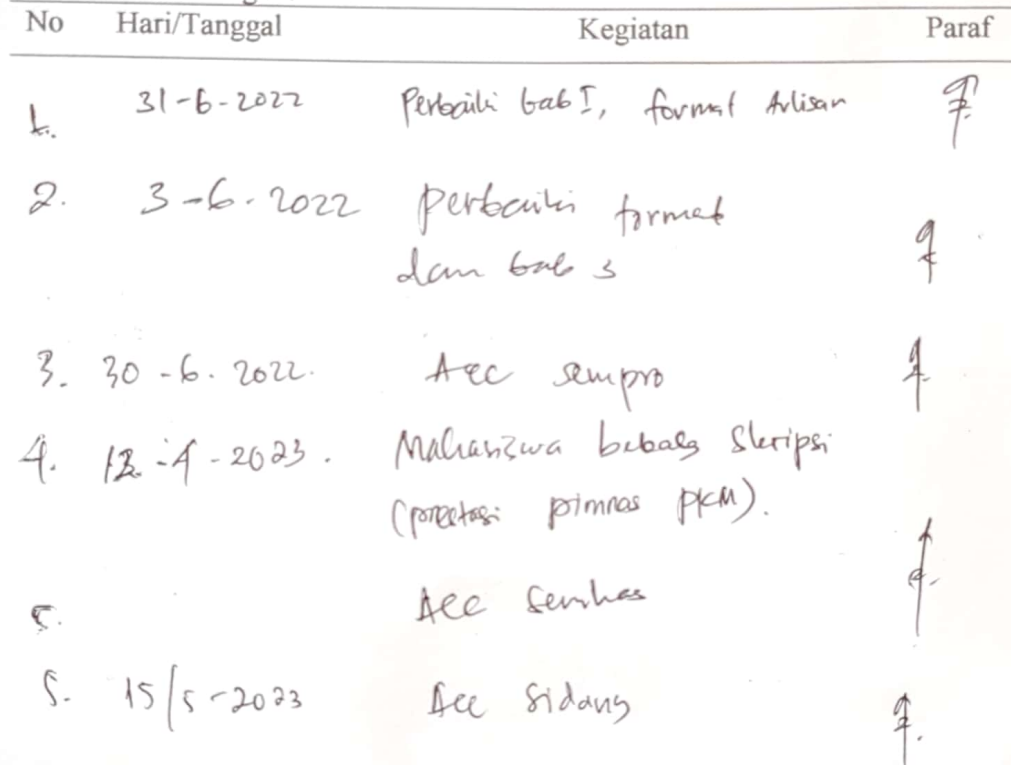 No Hari/Tanggal Kegiatan Paraf
1. 31-6-2022 Perbaiki bab I, format tulisan
2. 3-6-2022 perbaiki format
dan bab 3
3. 30-6-2022. Acc sempro
4. 12-4-2023. Mahasiswa bebas Skripsi
(prestasi pimnas PKM).
5. Acc Semhas
5. 15/5-2023 Acc Sidang